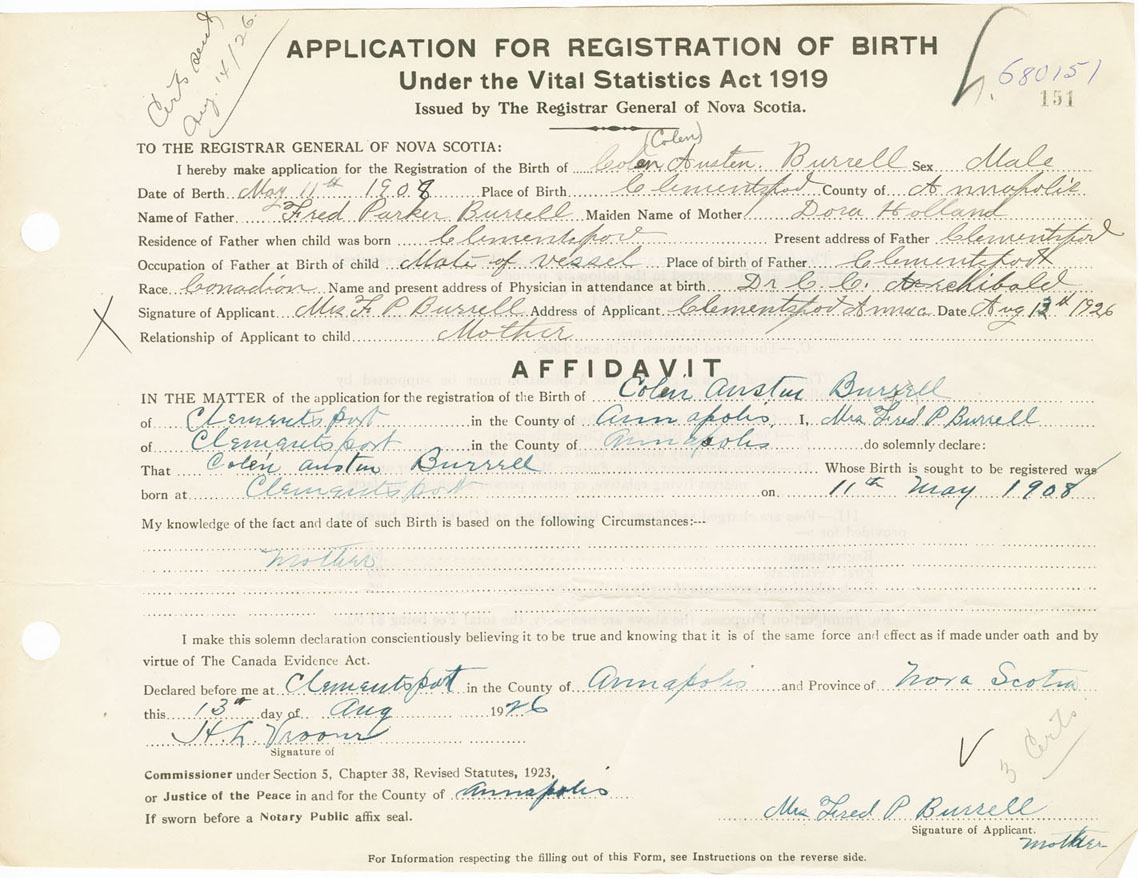 Certs sent
Aug. 14/26.
APPLICATION FOR REGISTRATION OF BIRTH
Under the Vital Statistics Act 1919
Issued by The Registrar General of Nova Scotia.
680151
151
TO THE REGISTRAR GENERAL OF NOVA SCOTIA:
(Colen)
I hereby make application for the Registration of the Birth of Colen Austen. Burrell Sex Male
Date of Berth May 11th 1908 Place of Birth Clementspod County of Annapolis
Name of Father Fred Parker Burrell Maiden Name of Mother Dora Holland
Residence of Father when child was born Clementspod Present address of Father Clementspod
Occupation of Father at Birth of child Mate of vessel Place of birth of Father Clementspott
Race Conadion Name and present address of Physician in attendance at birth Dr C. C. Archibald
Signature of Applicant Mrs F P. Burrell Address of Applicant Clementspod Date Aug 13th 1926
Relationship of Applicant to child Mother
AFFIDAVIT
IN THE MATTER of the application for the registration of the Birth of Colen Austin Burrell
of Clementsport in the County of Annapolis, I, Mrs Fred P Burrell
of Clementsport in the County of Annapolis do solemnly declare:
That Colen Austin Burrell Whose Birth is sought to be registered was
born at Clementsport on 11th May 1908
My knowledge of the fact and date of such Birth is based on the following Circumstances:---
Mother
I make this solemn declaration conscientiously believing it to be true and knowing that it is of the same force and effect as if made under oath and by
virtue of The Canada Evidence Act.
Declared before me at Clementsport in the County of Annapolis and Province of Nova Scotia
this 13th day of Aug 1926
H. L. Vroom
Signature of
Commissioner under Section 5, Chapter 38, Revised Statutes, 1923,
or Justice of the Peace in and for the County of Annapolis
If sworn before a Notary Public affix seal.
3 Certs
Mrs Fred P Burrell
Signature of Applicant.
Mother
For Information respecting the filling out of this Form, see Instructions on the reverse side.